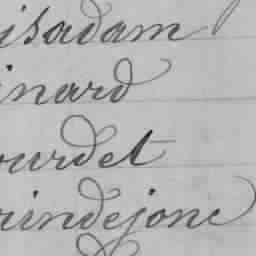 isadam
inard
ourdet
rindejonc